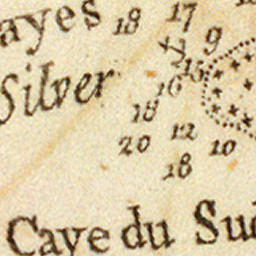 ayes 18 17
9
Silver 15
16
18
20 12 10
18
Caye du Sud